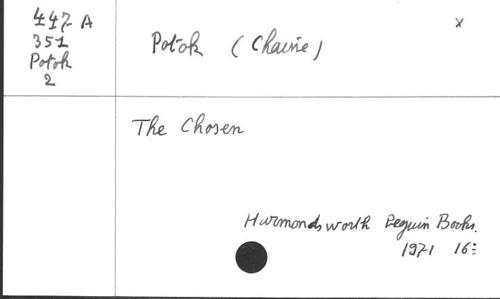 447-A
351
Potok
2
Potok (Chaine)
x
The Chosen
Harmondsworth Peguin Books.
1971 16